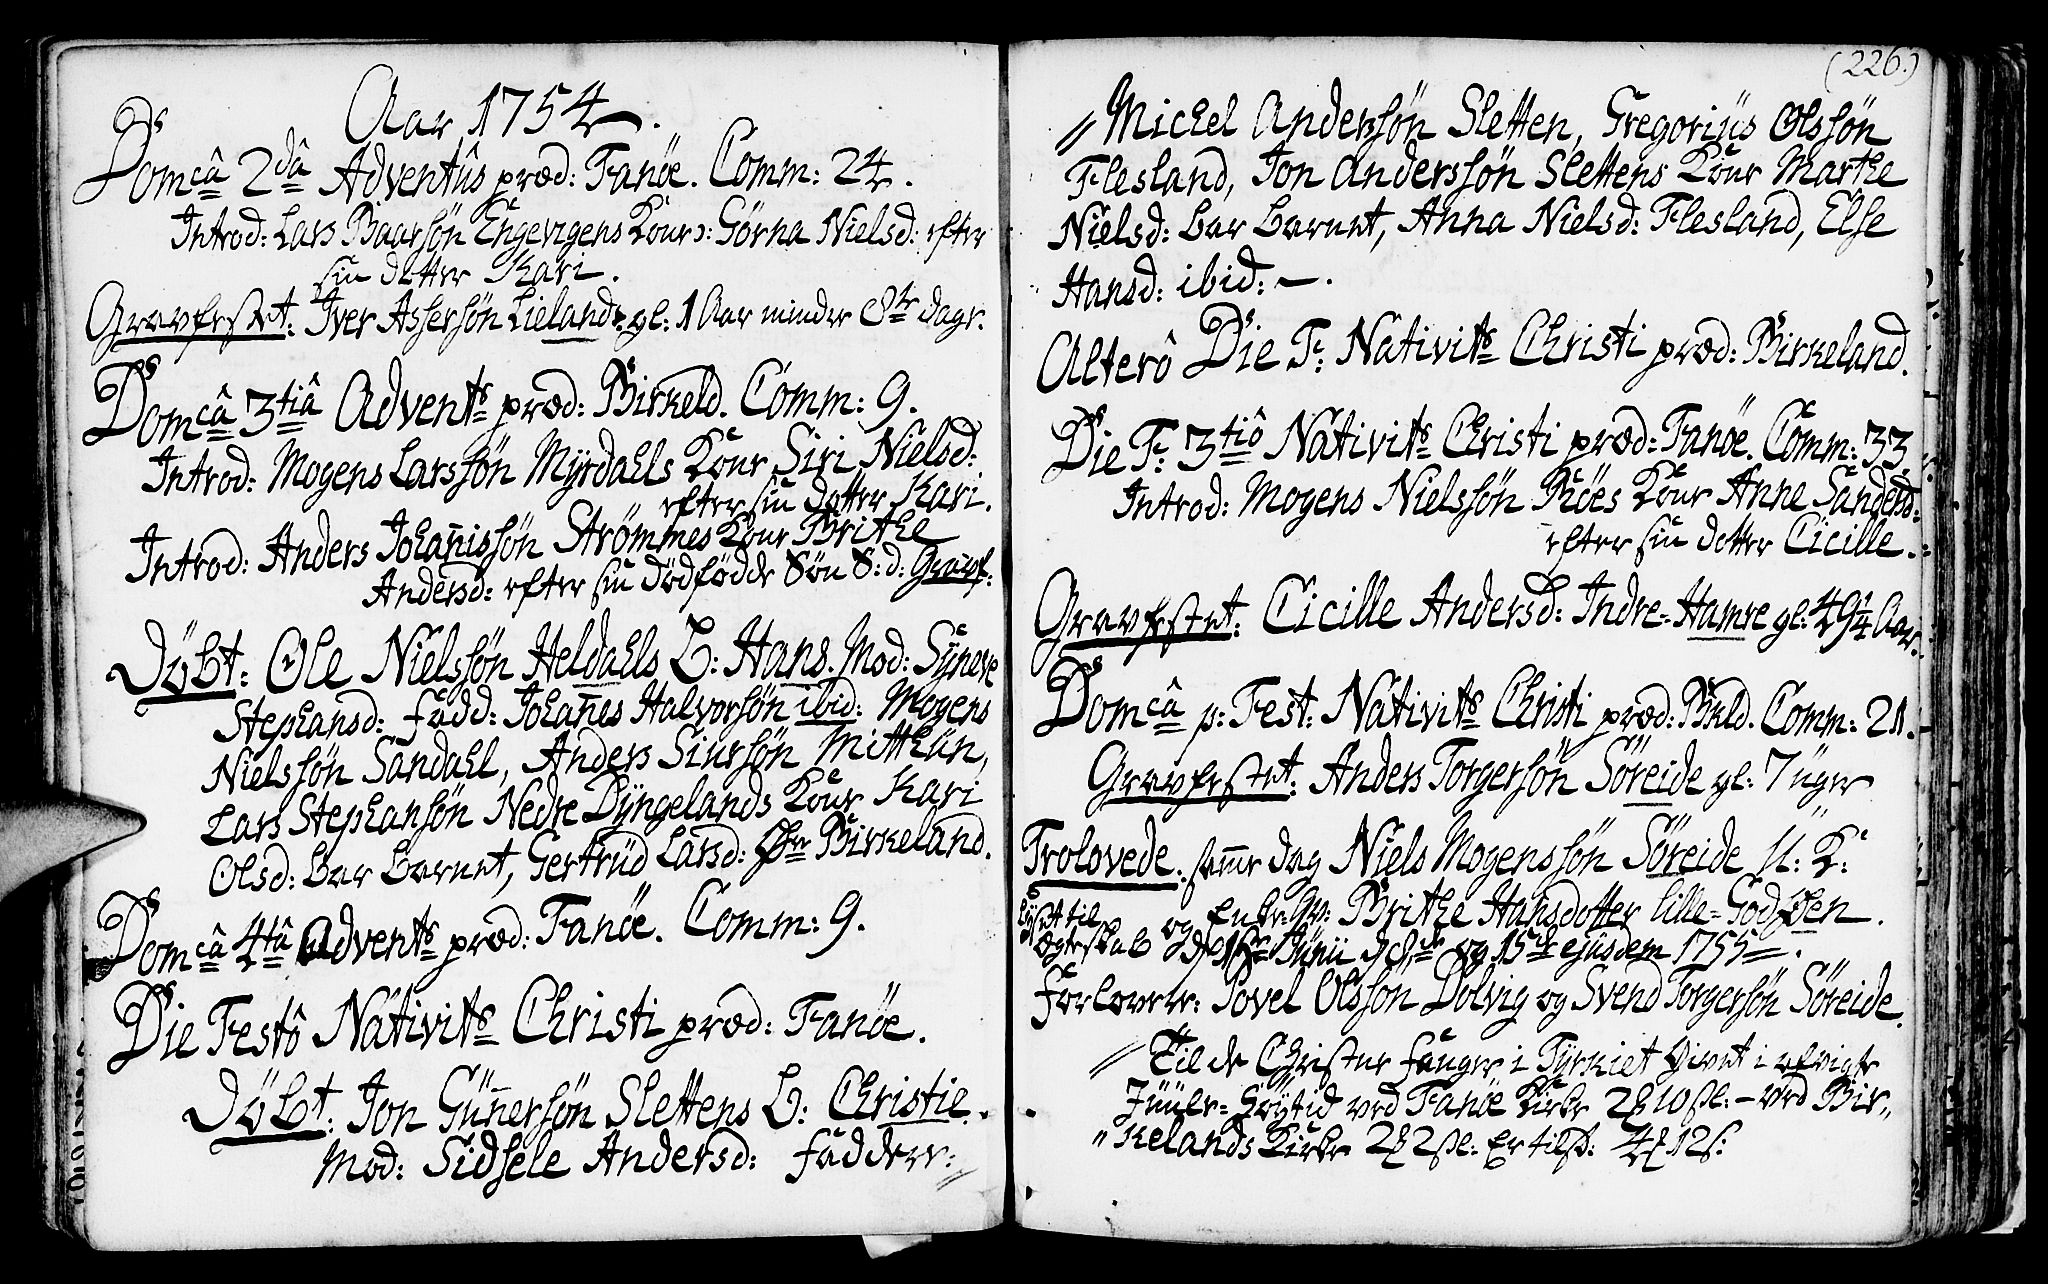 Aar 1754.
Domcâ 2dâ Adventûs præd: Fanöe. Comm: 24.
Introd: Lars Baarsön Engevigens Koure: Görna Nielsd: efter
sin detter Kari.
Gravfestet: Iver Assersön Lieland gl: 1 Aar minder 8te dage.
Domcâ 3tiâ Advents præd: Birkeld. Comm: 9.
Introd: Mogens Larssön Myrdahls Koue Siri Nielsd:
efter sin detter Kari.
Introd: Anders Johan̄issön Strömmes Koue Brithe
Andersd: efter sin dödfödde Sön S: d: Gravf:
Döbt: Ole Nielssön Heldahls b: Hans. Mod: Syneve
Stephansd: fadd: Johan̄es Halvorsön ibid: Mogens
Nielssön Sandahl, Anders Siursön Mitthun,
Lars Stephansön Nedre Dyngelands Koue Kari
Olsd: bar barnet, Gertrüd Larsd: Øvre Birkeland.
Domcâ 4tâ Advents præd: Fanöe. Comm: 9.
Die Festô Nativits Christi præd: Fanöe.
Döbt: Jon Gün̄ersön Slettens b: Christie.
Mod: Sidsele Andersd: faddere:
(226.)
Michel Anderssön Sletten, Gregoriüs Olssön
Flesland, Jon Anderssön Slettens Koue Marthe
Nielsd: bar barnet, Anna Nielsd: Flesland, Else
Hansd: ibid: —.
Alterô Die F: Nativits Christi præd: Birkeland.
Die F: 3tiô Nativits Christi præd: Fanöe. Comm: 33.
Introd: Mogens Nielssön Röes Koue Anne Sandersd:
efter sin detter Cicille.
Gravfestet: Cicille Andersd: Indre-Hamre gl: 49¼ Aar.
Domcâ p: Fest: Nativits Christi præd: Birkld. Comm: 21.
Gravfestet: Anders Torgersön Söreide gl: 7 üger
Trolovede. sam̄e dag Niels Mogenssön Söreide U: K:
og Enke: Qv: Brithe Hansdotter lille-Godøen.
Lyst til
Ægteskab d: 1te Jünii, 8de og 15de ejüsdem 1755.
Forlovere: Povel Olsson Dolvig og Svend Torgersön Söreide.
Til de Christne fanger i Tyrkiet givet i afvigte
Jüüle-Höytid ved Fanöe Kirke 2 10 sl: - ved Bir
kelands Kirke 2 2 sl: Er tils: 4 12 s: